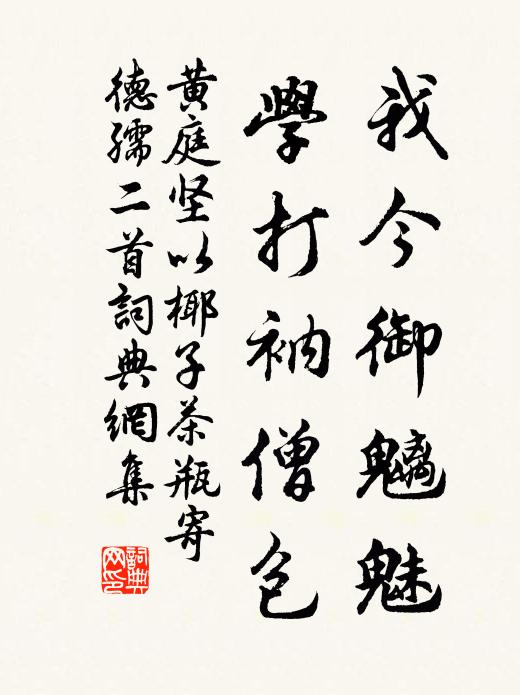 我今御魑魅
學打衲僧包
黄庭坚以椰子茶瓶寄
德孺二首詞典網集
詞典
网印